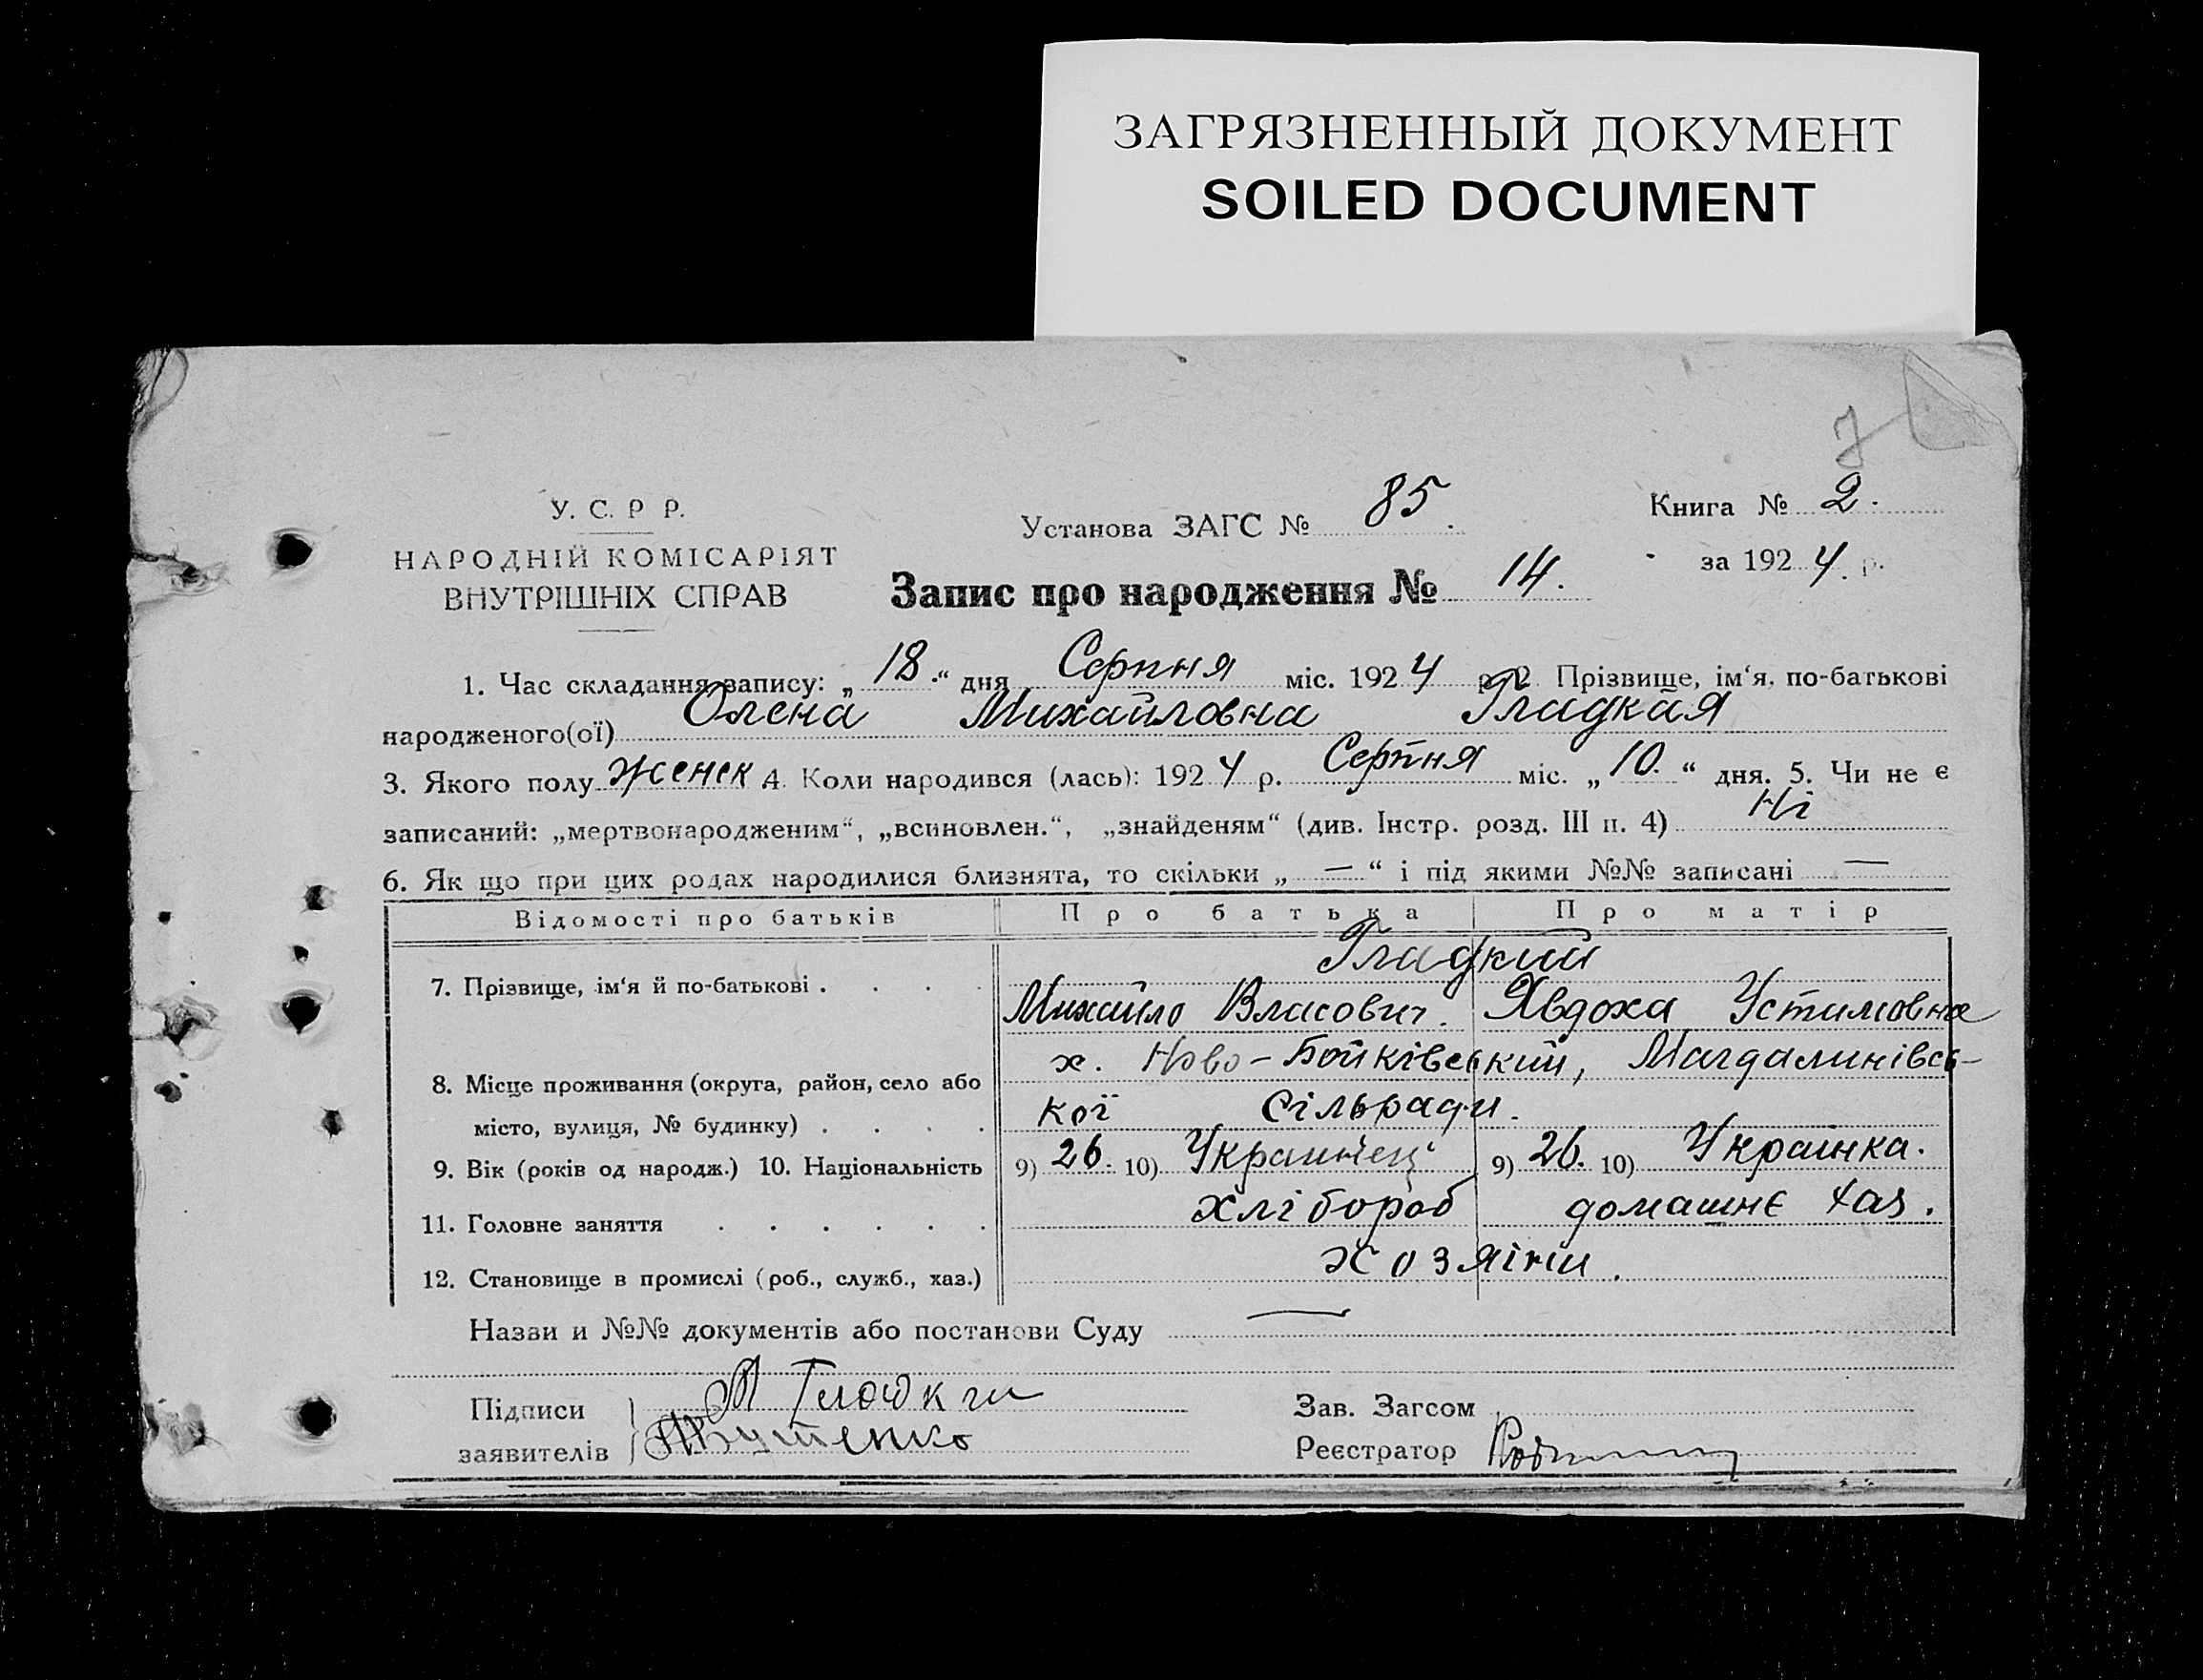 ЗАГРЯЗНЕННЫЙ ДОКУМЕНТ
SOILED DOCUMENT
У. С. Р Р.
НАРОДНІЙ КОМІСАРІЯТ
ВНУТРІШНІХ СПРАВ
Установа ЗАГС № 85.
Книга № 2.
за 1924. р.
Запис про народження № 14.
1. Час складання запису: „18.“ дня Серпня міс. 1924 р. 2 Прізвище, ім‘я, по-батькові
народженого(ої) Олена Михайловна Гладкая
3. Якого полу женск 4. Коли народився (лась): 1924 р. Серпня міс. „10.“ дня. 5. Чи не є
записаний: „мертвонародженим“, „всиновлен.“, „знайденям“ (див. Інстр. розд. III п. 4) Ні
6. Як що при цих родах народилися близнята, то скільки „ — “ і під якими №№ записані —
Відомості про батьків Про батька Про матір
Гладкий
7. Прізвище, ім‘я й по-батькові . . . . Михайло Власович. Явдоха Устимовна
х. Ново-Бойківський, Магдалинівсь-
8. Місце проживання (округа, район, село або
місто, вулиця, № будинку) . . . . кої сільради.
9. Вік (років од народж.) 10. Національність 9) 26. 10) Украинец 9) 26. 10) Украінка.
11. Головне заняття . . . . . . хлібороб домашнє хаз.
12. Становище в промислі (роб., служб., хаз.) хозяіни.
Назви и №№ документів або постанови Суду —
Підписи М Гладкий
заявителів
Зав. Загсом
Реєстратор